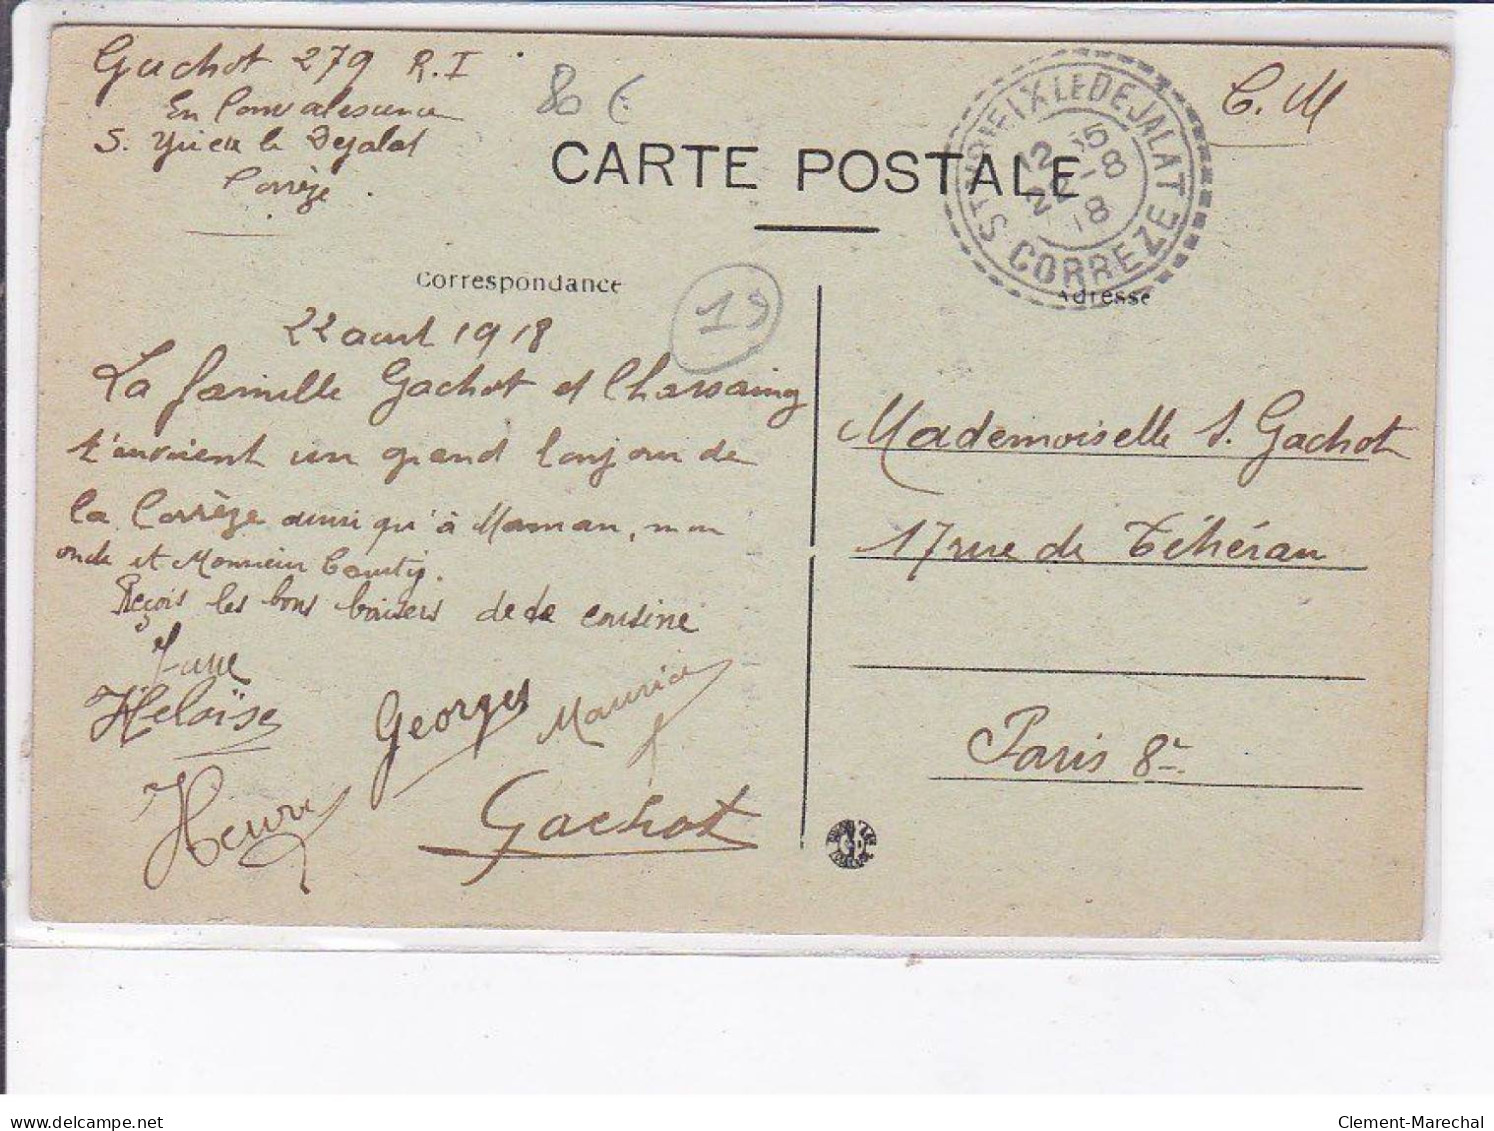 Gachot 279 R.I
En Convalescence
S. Yrieix le Dejalat
Corrèze
80 €
C. M
CARTE POSTALE
ST YRIEIX LE DEJALAT
12 15
22 -8
18
CORREZE
Correspondance
19
Adresse
22 aout 1918
La famille Gachot et Chassaing
t'envoient un grand bonjour de
la Corrèze ainsi qu'à Maman, mon
oncle et Monsieur
Reçois les bons baisers de ta cousine
Jane
Héloïse
Georges
Maurice
Henri
Gachot
Mademoiselle S. Gachot
17 rue de Téhéran
Paris 8e
delcampe.net
Clement-Marechal